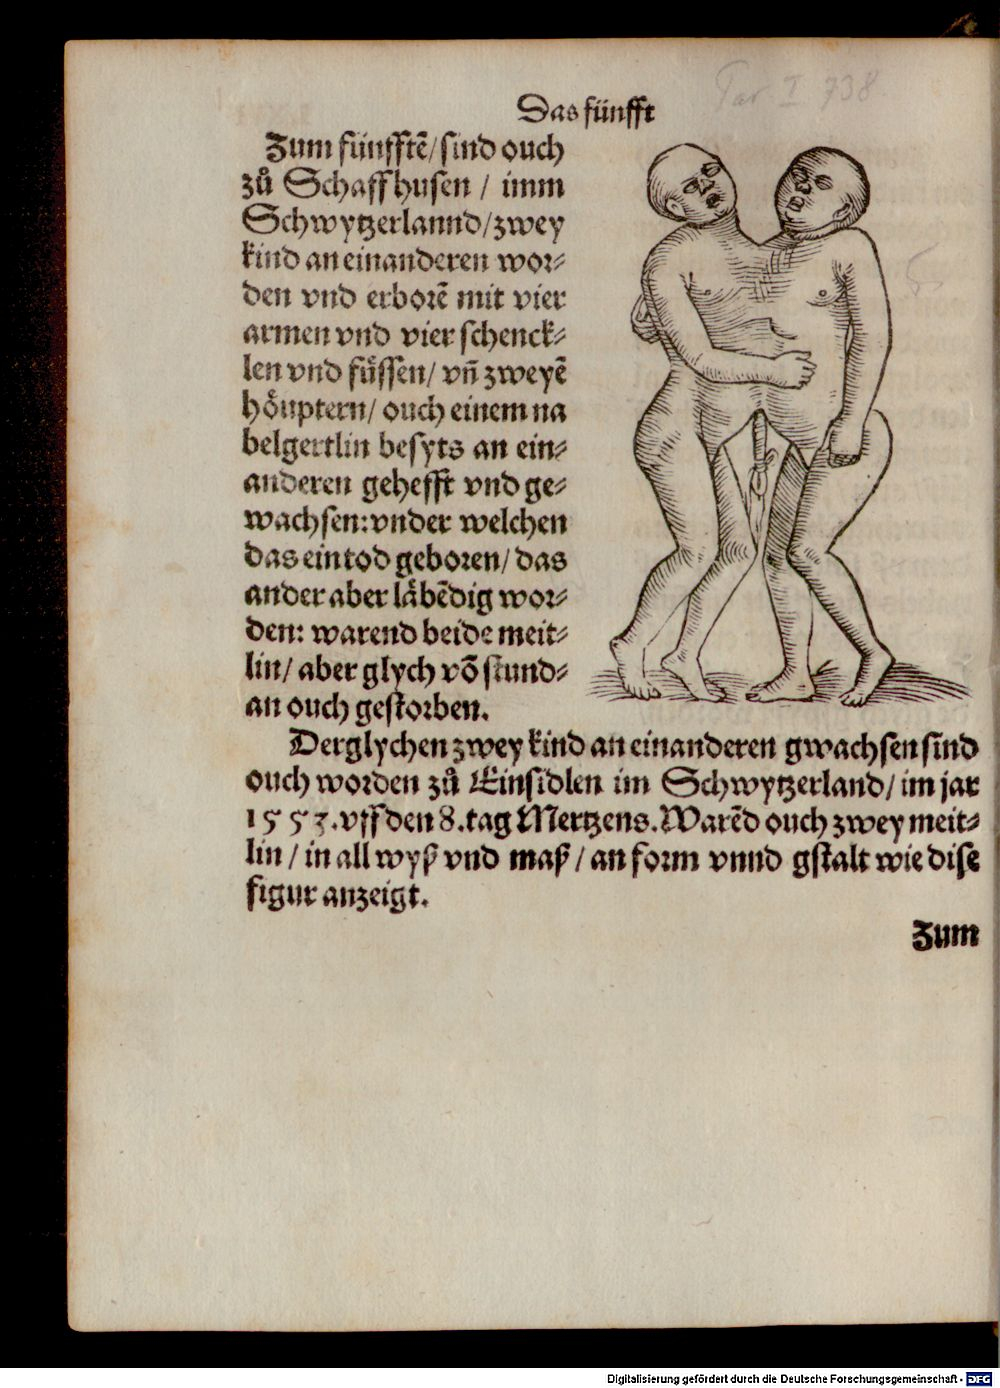 Tar. I 738.
Das fünfft
Zum fünfftẽ/ sind ouch
zů Schaffhusen / imm
Schwytzerlannd/zwey
kind an einanderen wor⸗
den vnd erborẽ mit vier
armen vnd vier schenck⸗
len vnd fuͤssen/ vñ zweyẽ
hoͤuptern/ ouch einem na
belgertlin besyts an ein⸗
anderen gehefft vnd ge⸗
wachsen:vnder welchen
das ein tod geboren/ das
ander aber laͤbẽdig wor⸗
den: warend beide meit⸗
lin/ aber glych võ stund⸗
an ouch gestorben.
Derglychen zwey kind an einanderen gwachsen sind
ouch worden zů Einsidlen im Schwytzerland/ im jar
1553.vff den 8.tag Mertzens.Warẽd ouch zwey meit⸗
lin / in all wyß vnd maß / an form vnnd gstalt wie dise
figur anzeigt.
Zum
Digitalisierung gefördert durch die Deutsche Forschungsgemeinschaft - DFG